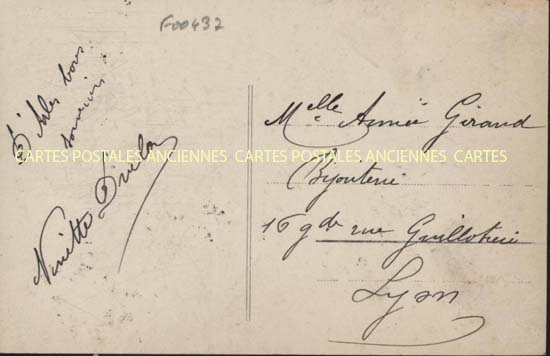 F00432
D'Arles bons
souvenirs.
Ninette
Melle Aimée Giraud
Bijouterie
16 gde rue Guillotière
Lyon
CARTES POSTALES ANCIENNES CARTES POSTALES ANCIENNES CARTES